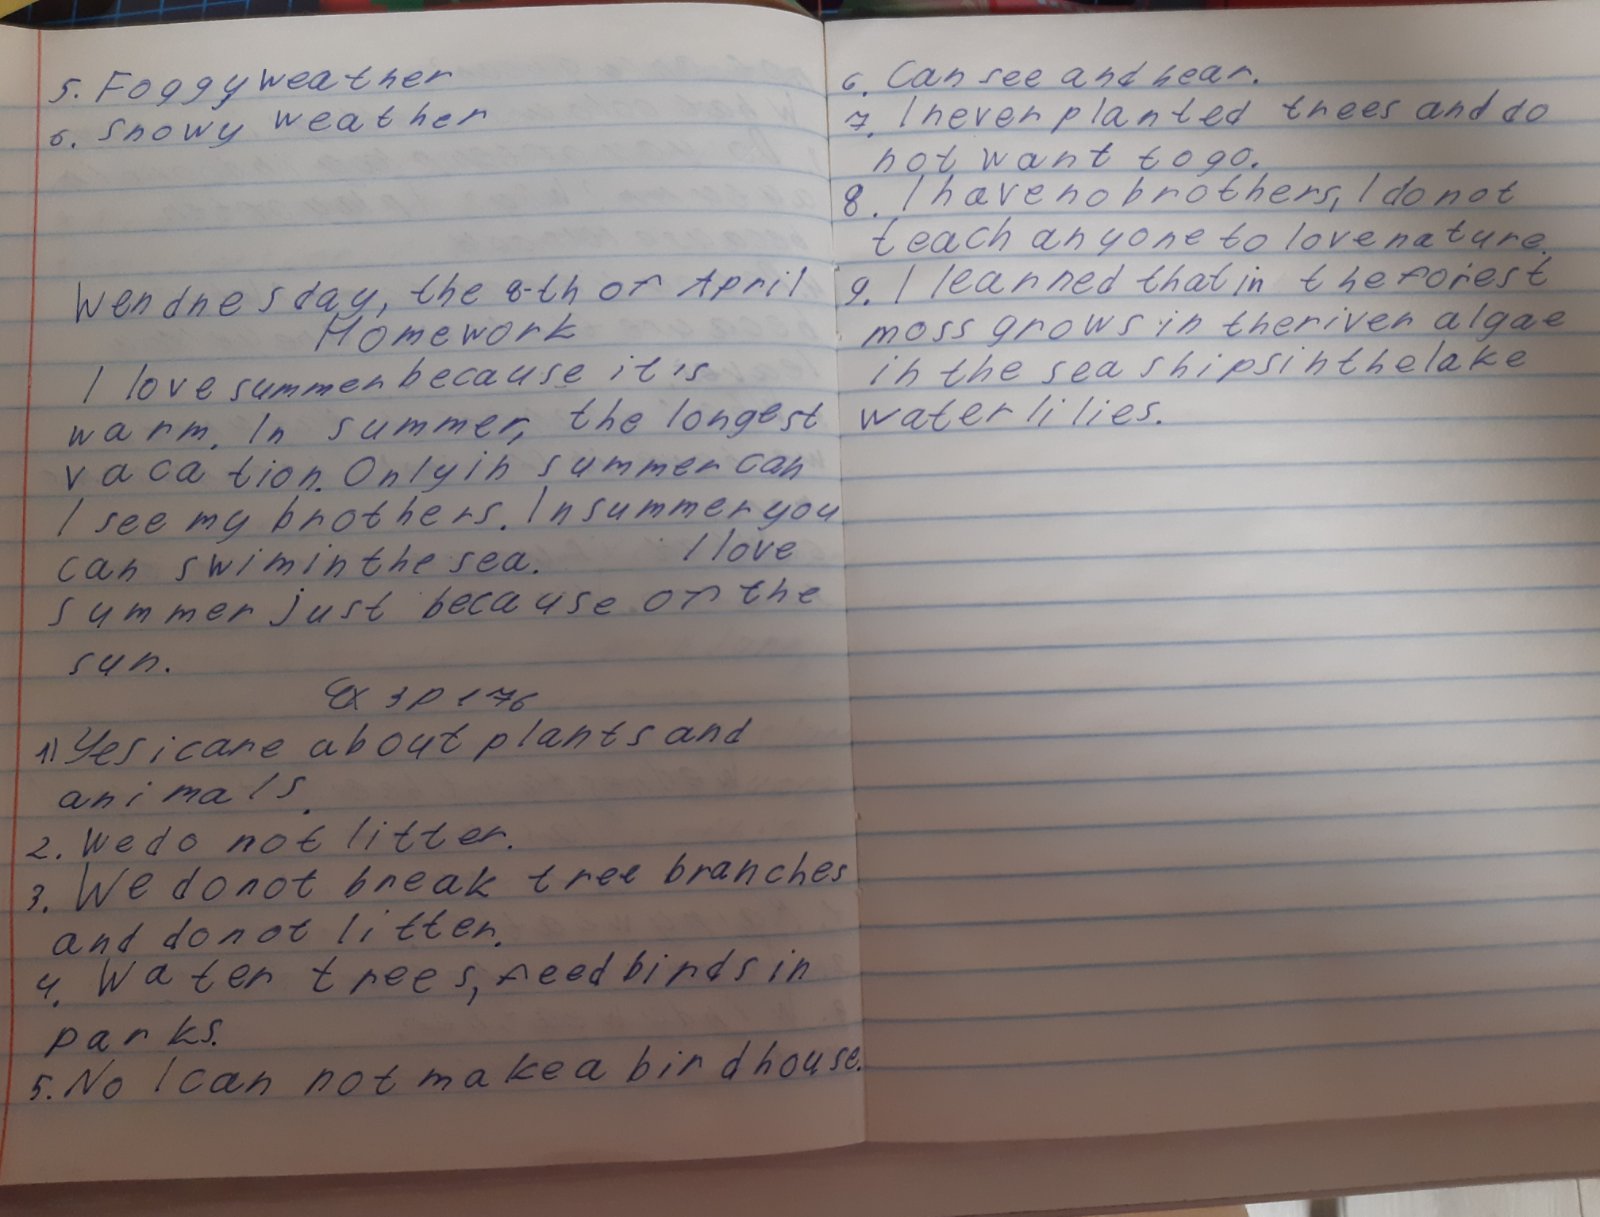 5. Foggy weather
6. Snowy weather
Wendnesday, the 8-th of April
Homework
I love summer because it is
warm. In summer, the longest
vacation. Only in summer can
I see my brothers. In summer you
can swim in the sea. I love
summer just because of the
sun.
Ex 3 p 176
1) Yes i care about plants and
animals.
2. We do not litter.
3. We do not break tree branches
and do not litter.
4. Water trees, feed birds in
parks.
5. No I can not make a birdhouse.
6. Can see and hear.
7. I never planted trees and do
not want to go.
8. I have no brothers, I do not
teach anyone to love nature.
9. I learned that in the forest
moss grows in the river algae
in the sea ships in the lake
water lilies.